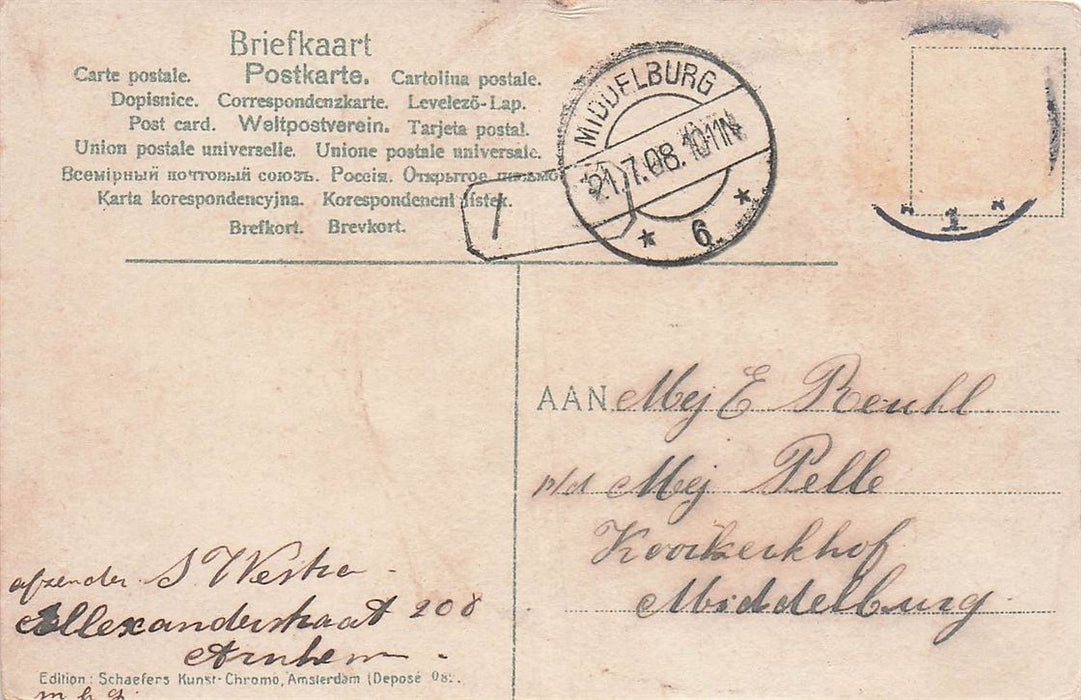 Briefkaart
Carte postale. Postkarte. Cartolina postale.
Dopisnice. Correspondenzkarte. Levelező-Lap.
Post card. Weltpostverein. Tarjeta postal.
Union postale universelle. Unione postale universale.
Всемірный почтовый союзъ. Россія. Открытое письмо
Karta korespondencyjna. Korespondenční lístek.
Brefkort. Brevkort.
MIDDELBURG
21.7.08. 1011N
6
1
1
AAN Mej E Reuhl
p/a Mej Pelle
Koorkerkhof
Middelburg
afzender S Westra
Allexanderstraat 208
Arnhem
Edition: Schaefers Kunst-Chromo, Amsterdam (Deposé 08.